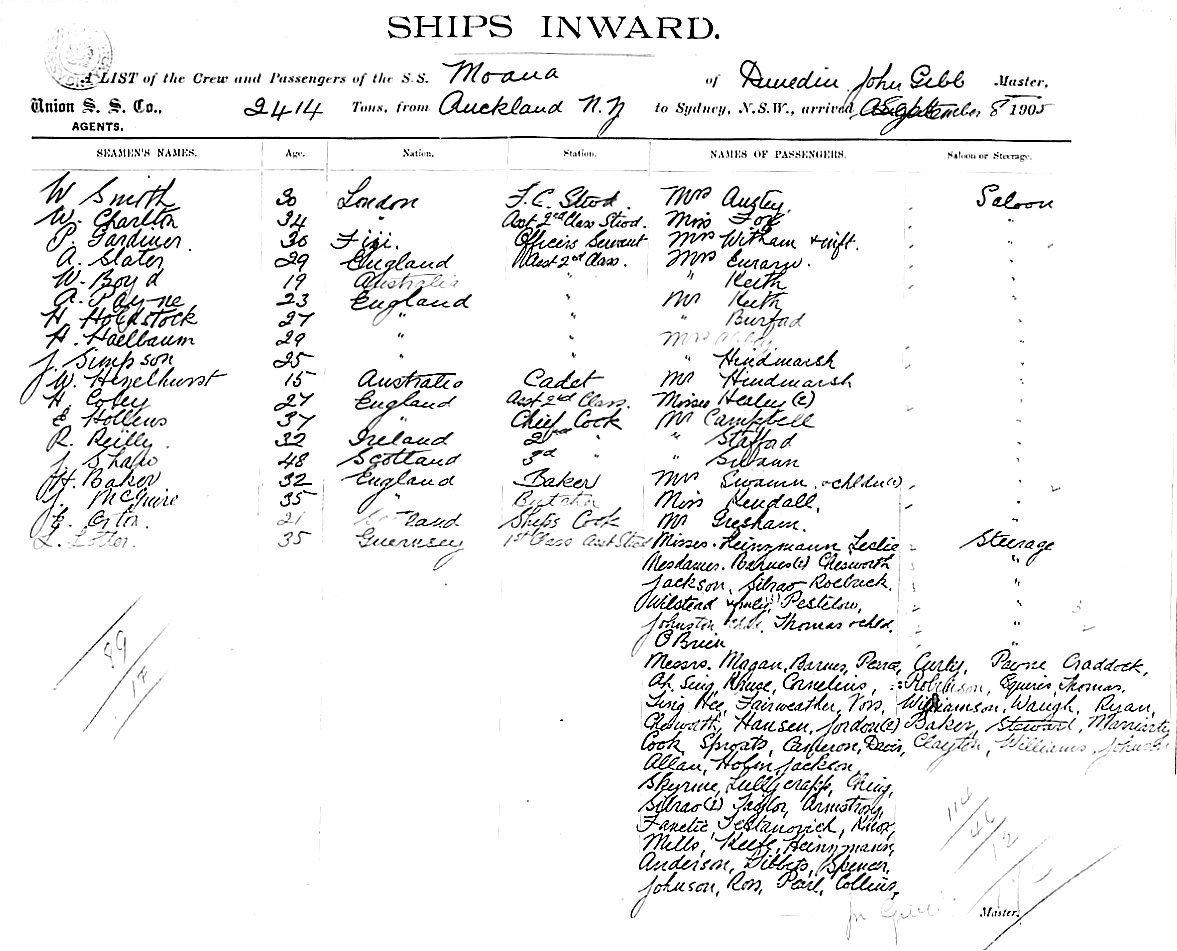 SHIPS INWARD.
A LIST of the Crew and Passengers of the S.S. Moana of Dunedin John Gibb Master,
Union S. S. Co., 2414 Tons, from Auckland N Z to Sydney, N.S.W., arrived September 8 1905
AGENTS.
SEAMEN'S NAMES. Age. Nation. Station. NAMES OF PASSENGERS. Saloon or Steerage.
W Smith 30 London F. C. Stwd. Mrs Saloon
W. Charlton 34 " Asst 2nd Class Stwd. Miss Fox "
P. Gardiner. 30 Fiji. Officers Servant Mrs Witham & inft. "
A. Slater 29 England Asst 2nd Class. Mrs "
W. Boyd 19 Australia " " Keith "
A. Payne 23 England " Mr Keith "
H Holdstock 27 " " " Burfad "
H. Haelbaum 29 " " Mrs "
J. Simpson 25 " " " Hindmarsh "
W. Hezelhurst 15 Australia Cadet Mr Hindmarsh "
H Coley 27 England Asst 2nd Class. Misses Healey (2) "
E Hollins 37 " Chief Cook Mr Campbell "
R. Reilly. 32 Ireland 2nd " " Stafford "
J. Shaw 48 Scotland 3rd " " Swann "
H. Baker 32 England Baker Mrs Swann & chldn "
J. McGuire 35 " Butcher Miss Kendall. "
E. Orton. 21 Ships Cook Mr Gresham. "
L. Lotter. 35 Guernsey 1st Class Asst Stwd Misses. Heinzmann Leslie Steerage
Mesdames. Barnes Chesworth "
Jackson, Silrao Roebuck. "
Wilstead Pestelow, "
Johnston Thomas & chld. "
O'Brien "
Messrs. Magan, Barnes, Pearce, Curty, Payne Craddock,
Ah Sing, Kruce, Cornelius, Robinson, Squires, Thomas.
Ting Hee, Fairweather, Voss, Williamson, Waugh, Ryan,
Chesworth, Hansen, Jordon (2) Baker, Steward, Marriarty
Cook Sproats, Cameron, Davis, Clayton, Williams, Johnson
Allan, Holm, Jackson,
Skyrme, Lullycrapp, Ching,
Silrao (2) Taylor, Armstrong,
Fanetic, Testanovich, Knox,
Mills, Keefe, Heinzmann,
Anderson, Gibbets, Spencer,
Johnson, Ross, Pearl, Collins,
89
17
114
46
12
Jn Gibb Master.